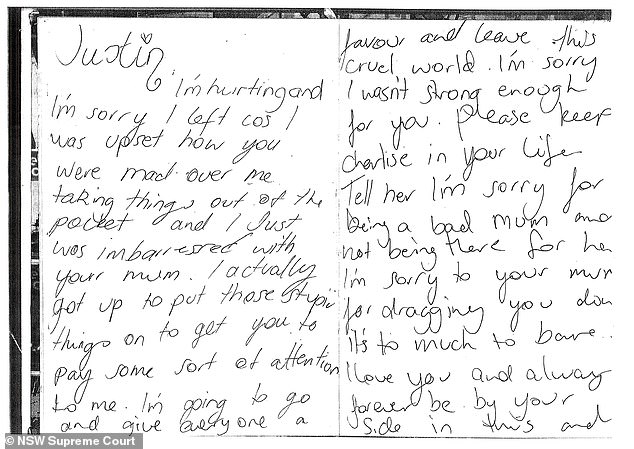 Justin
I'm hurting and
I'm sorry I left cos I
was upset how you
were mad over me
taking things out of the
pocket and I Just
was imbarressed with
your mum. I actually
got up to put those
things on to get you to
pay some sort of attention
to me. I'm going to go
and give everyone a
favour and leave this
cruel world. I'm sorry
I wasn't strong enough
for you. Please keep
charlise in your life
Tell her I'm sorry for
being a bad mum and
not being there for
I'm sorry to your
for dragging you
it's to much to bare..
I love you and
forever be by your
side in this and
© NSW Supreme Court